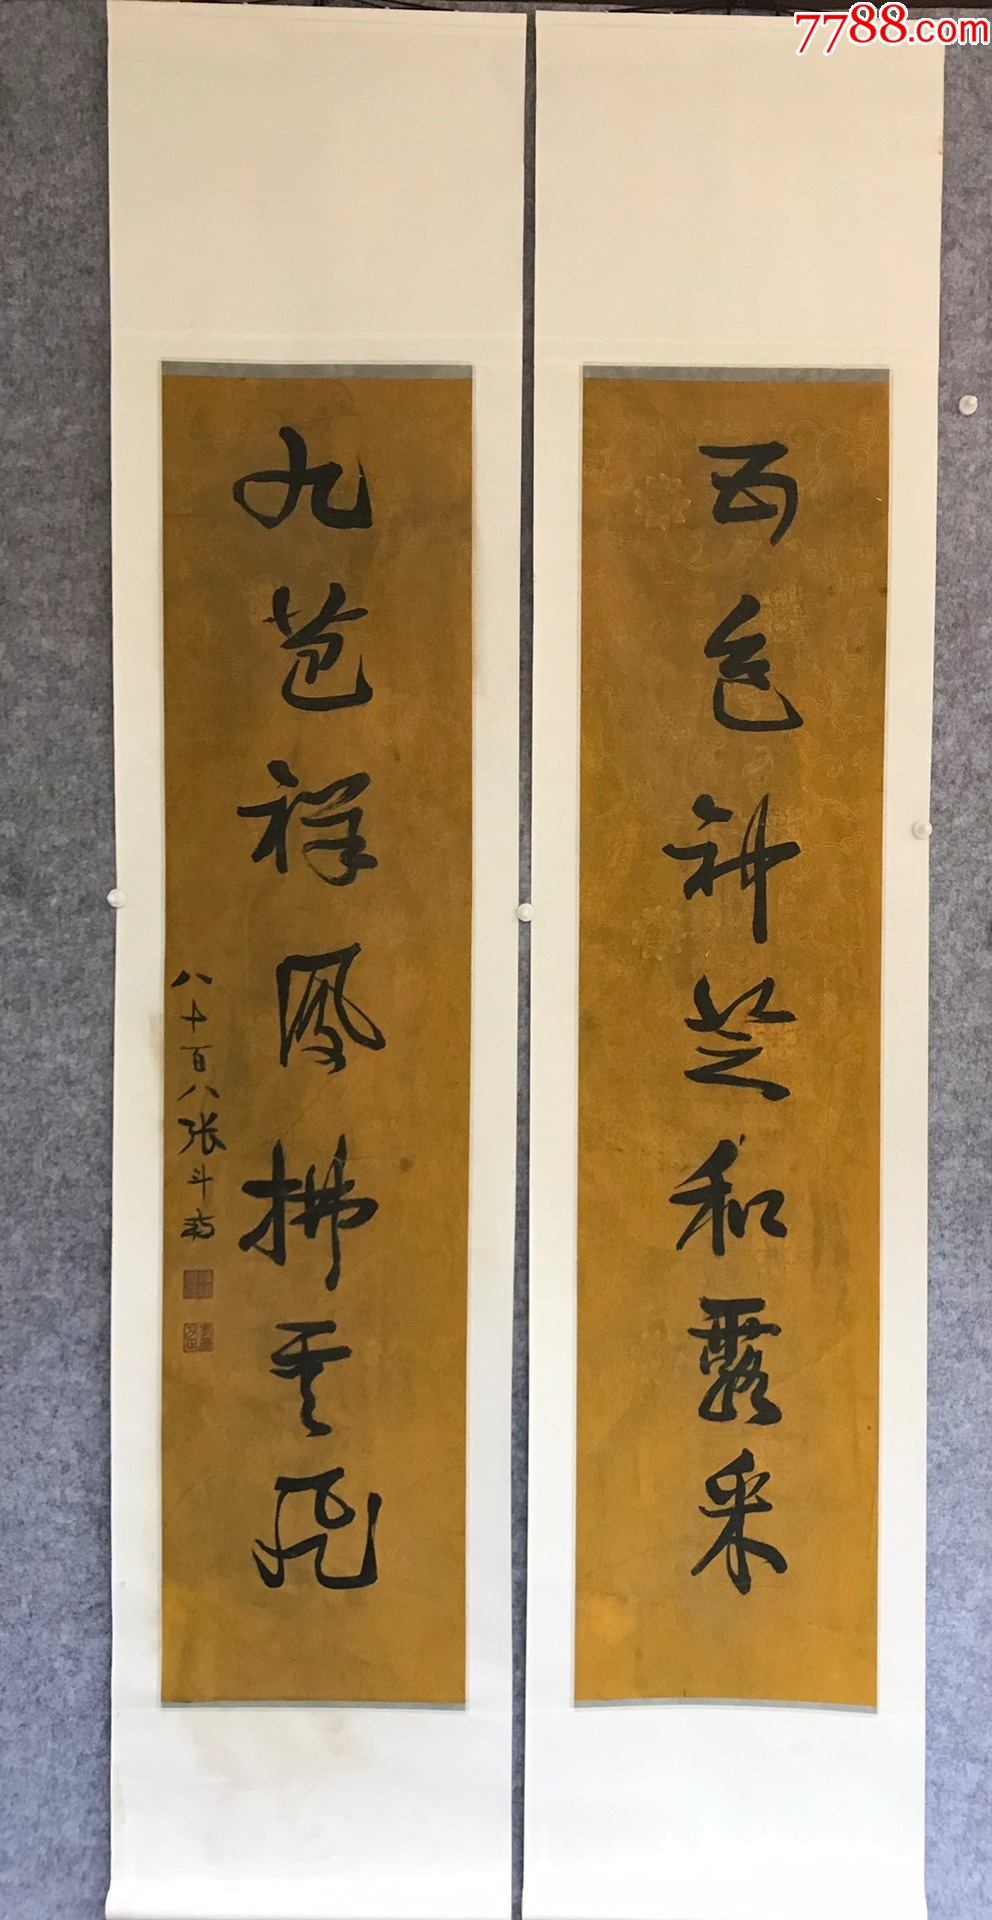 7788.com
五色神芝和露采
九苞祥鳳拂雲飛
八十百八張斗南